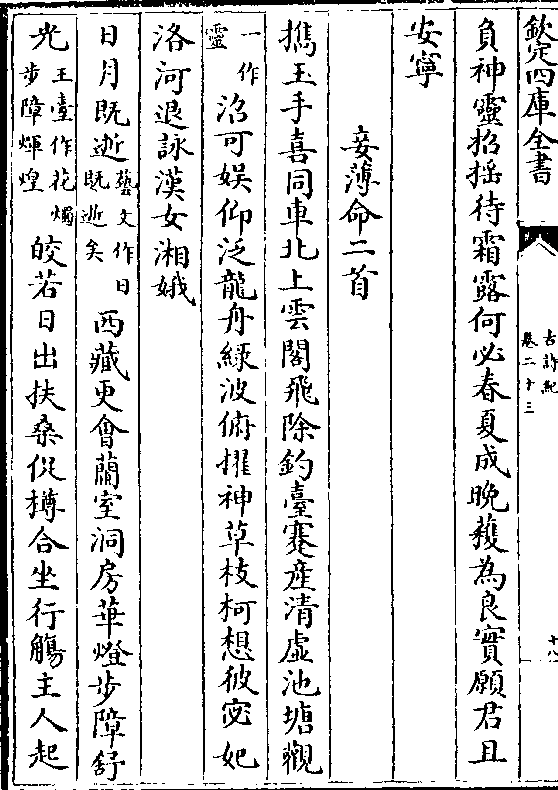 欽定四庫全書
古詩紀
卷二十三
十八
負神靈招揺待霜露何必春夏成晚穫為良實願君且
安寧
妾薄命二首
攜玉手喜同車北上雲閣飛除釣臺蹇產清虛池塘觀
一作靈
沼可娱仰泛龍舟綠波俯擢神草枝柯想彼宓妃
洛河退詠漢女湘娥
日月既逝藝文作日既逝矣西藏更會蘭室洞房華燈步障舒
光玉臺作花燭步障煇煌皎若日出扶桑促樽合坐行觴主人起